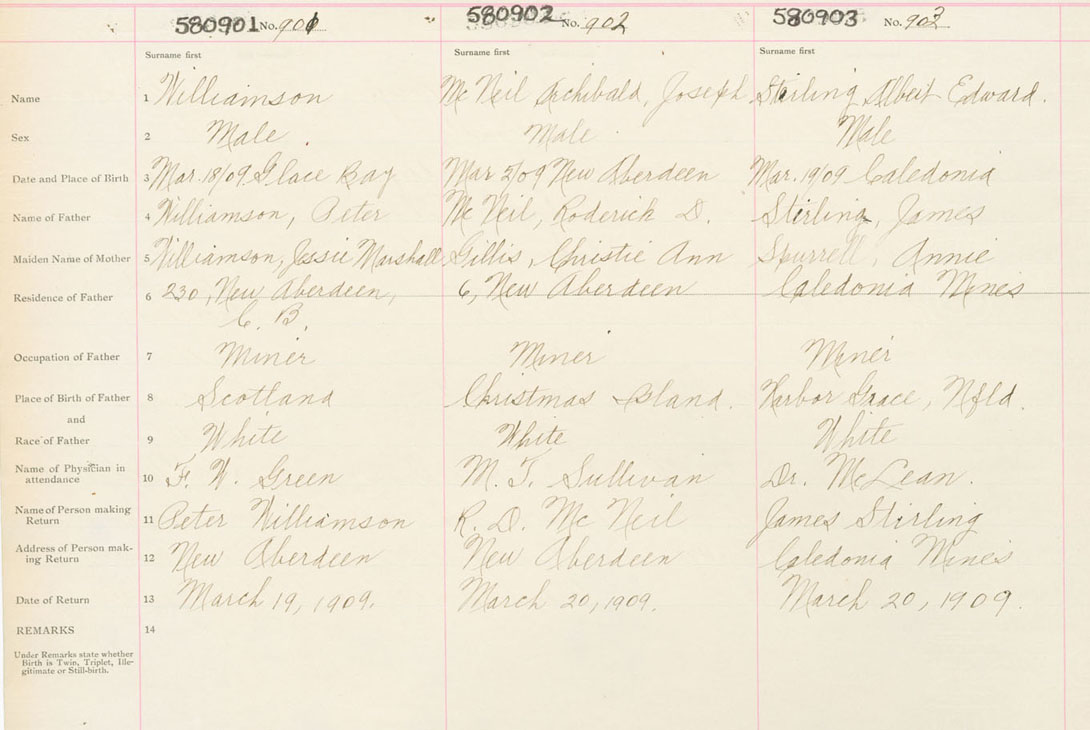 580901 No. 901 580902 No. 902 580903 No. 903
Surname first Surname first Surname first
Name 1 Williamson Mc Neil Archibald, Joseph Stirling Albert Edward.
Sex 2 Male. Male Male
Date and Place of Birth 3 Mar. 18/09 Glace Bay Mar 2/09 New Aberdeen Mar. 19/09 Caledonia
Name of Father 4 Williamson, Peter Mc Neil, Roderick D. Stirling, James
Maiden Name of Mother 5 Williamson, Jessie Marshall Gillis, Christie Ann Spurrell, Annie
Residence of Father 6 230, New Aberdeen, 6, New Aberdeen Caledonia Mines
C. B.
Occupation of Father 7 Miner Miner Miner
Place of Birth of Father 8 Scotland Christmas Island. Harbor Grace, Nfld.
and
Race of Father 9 White White White
Name of Physician in
attendance 10 F. W. Green M. T. Sullivan Dr. McLean.
Name of Person making
Return 11 Peter Williamson R. D. Mc Neil James Stirling
Address of Person mak-
ing Return 12 New Aberdeen New Aberdeen Caledonia Mines
Date of Return 13 March 19, 1909. March 20, 1909. March 20, 1909.
REMARKS 14
Under Remarks state whether
Birth is Twin, Triplet, Ille-
gitimate or Still-birth.